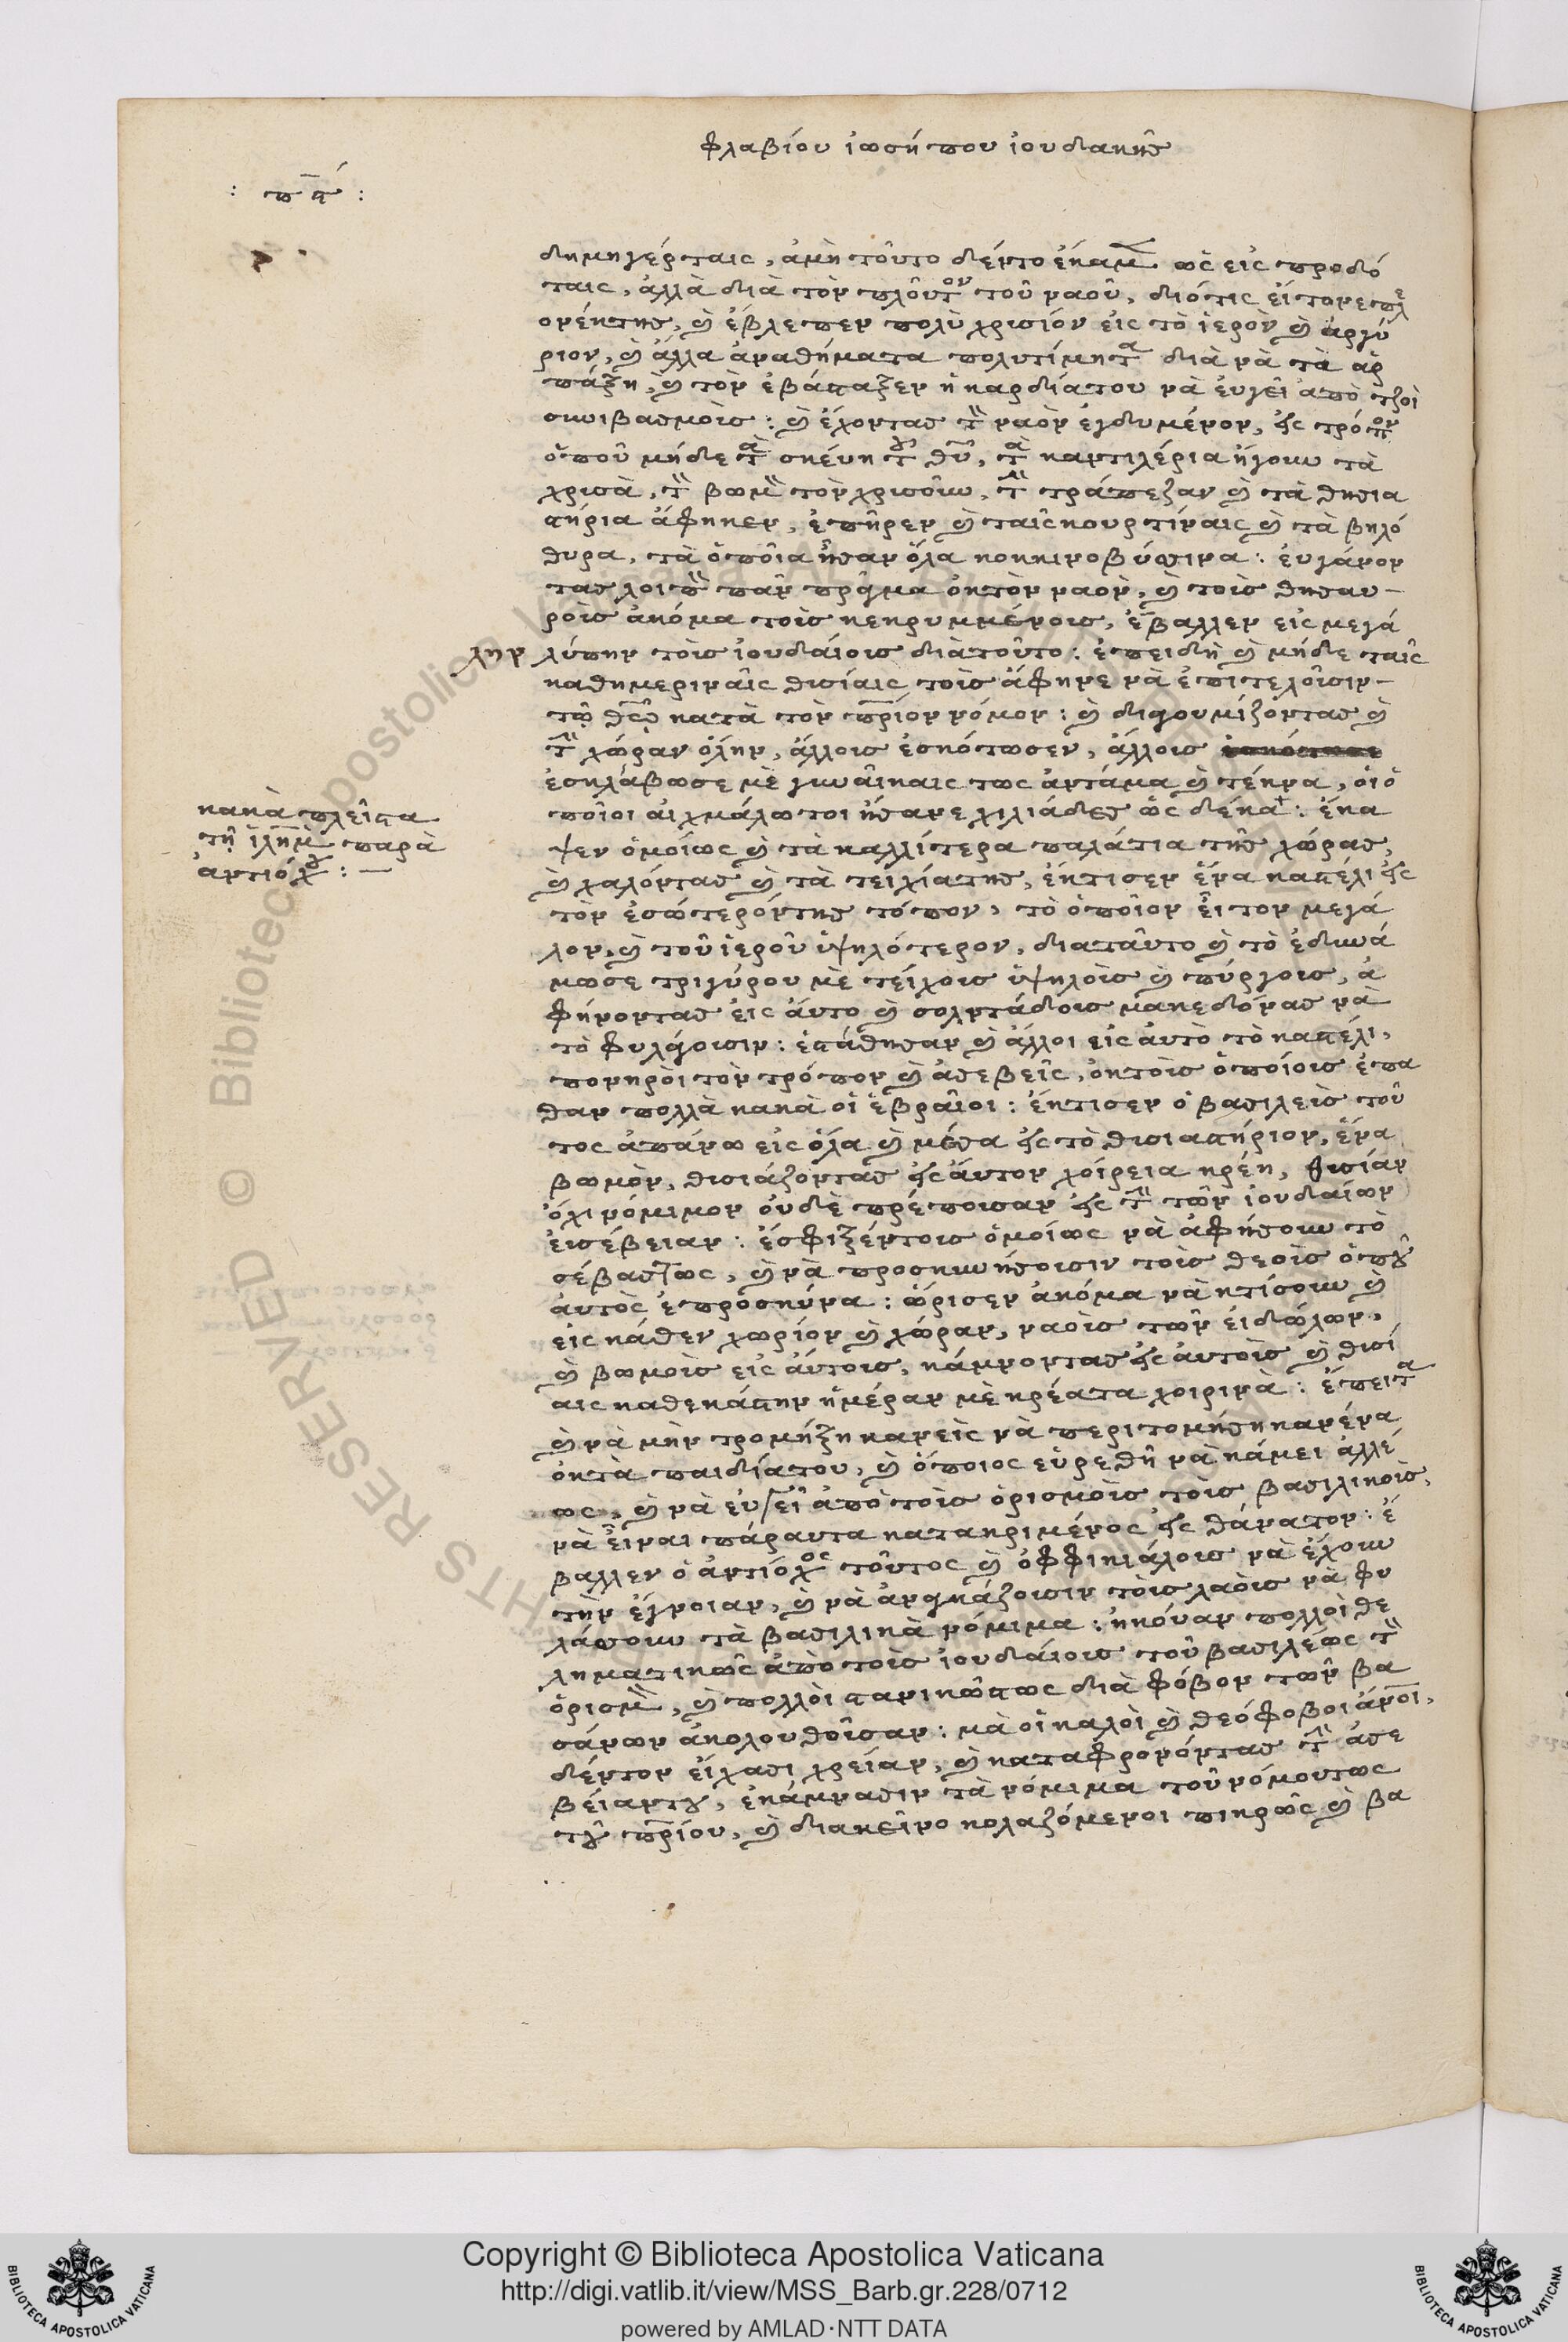 φλαβίου ἰωσήπου ἰουδαικῆς
: πϛ :
δημηγέρταις, ἀμὴ τοῦτο δέντο ἔκαμε ὡς εἰς προδό
ταις, ἀλλὰ διὰ τὸν πλοῦτον τοῦ ναοῦ, διότις εἶτονε πλε
ονέκτης, καὶ ἔβλεπεν πολὺ χρισίον εἰς τὸ ἱερὸν καὶ ἀργύ
ριον, καὶ ἄλλα ἀναθήματα πολυτίμητα διὰ νὰ τὰ αρ
πάξη, καὶ τὸν ἐβάσταξεν ἡ καρδίατου νὰ ἐυγεῖ ἀπὸ τζοὶ
σιμιβασμοὶς : καὶ ἔχοντας τὸν ναὸν ἐγδυμένον, εἰς τρόπον
ὁποῦ μήδε τὰ σκέυη τοῦ θῦ, τὰ καντιλέρια ἤγουν τὰ
χρισὰ, τὸν βωμὸν τὸν χρισοῦν, τὴν τράπεζαν καὶ τὰ θησια
στήρια ἄφηκεν, ἐπῆρεν καὶ ταῖς κουρτίναις καὶ τὰ βηλό
θυρα, τὰ ὁποῖα ἦσαν ὅλα κοκκινοβύσινα : ἐυγάνον
τας λοιπὸν πᾶν πρᾶγμα ὀκτὸν ναὸν, καὶ τοὶς θησαυ-
ροὶς ἀκόμα τοὶς κεκρυμμένοις, ἔβαλλεν εἰς μεγά
λην λύπην τοὶς ἰουδαίοις διὰ τοῦτο : ἐπειδὴ καὶ μήδε ταῖς
καθημεριναῖς θισίαις τοὶς ἄφηνε νὰ ἐπιτελοῖσιν-
τῷ θεῷ κατὰ τὸν πριον νόμον : καὶ διαγουμίζοντας καὶ
τὴν χώραν ὅλην, ἄλλοις ἐσκότωσεν, ἄλλοις
ἐσκλάβωσε μὲ γυναίκαις τως ἀντάμα καὶ τέκνα, οἱ ὁ
ποῖοι αἰχμάλωτοι ἤσανε χιλιάδες ὡς δέκα : ἔκα
ψεν ὁμοίως καὶ τὰ καλλίτερα παλάτια τῆς χώρας,
κακὰ πλεῖστα
τῇ ἱλημ παρὰ
ἀντιόχου : —
καὶ χαλόντας καὶ τὰ τείχίατης, ἔκτισεν ἕνα καστέλι εἰς
τὸν ἐσώτερόντης τόπον, τὸ ὁποῖον εἶτον μεγά
λον, καὶ τοῦ ἱεροῦ ὑψηλότερον, διαταῦτο καὶ τὸ ἐδυνά
μωσε τριγύρου μὲ τείχοις ὑψηλοὶς καὶ πύργοις, ἀ
φήνοντας εἰς ἄυτο καὶ σολντάδοις μακεδόνας νὰ
τὸ φυλάγοισιν : ἐστάθησαν καὶ ἄλλοι εἰς ἀυτὸ τὸ καστέλι,
πονηρὸι τὸν τρόπον καὶ ἀσεβεῖς, ὀκτοὶς ὁποίοις ἐπα
θαν πολλὰ κακὰ οἱ ἑβραῖοι : ἔκτισεν ὁ βασιλεὶς τοῦ
τος ἀπάνω εἰς ὅλα καὶ μέσα εἰς τὸ θισιαστήριον, ἕνα
βωμὸν, θισιάζοντας εἰς ἄυτον χοίρεια κρέη, θισίαν
ὄχι νόμιμον ὀυδὲ πρέποισαν εἰς τὴν τῶν ἰουδαίων
ἐισέβειαν : ἔσφιξέντοις ὁμοίως νὰ ἀφήσουν τὸ
σέβαστως, καὶ νὰ προσκυνήσοισιν τοὶς θεοὶς ὁποῦ
ἀυτὸς ἐπροσκύνα : ὥρισεν ἀκόμα νὰ κτίσουν καὶ
εἰς κάθεν χωρίον καὶ χώραν, ναοὶς τῶν ἐιδώλων,
καὶ βωμοὶς εἰς ἄυτοις, κάμνοντας εἰς ἀυτοὶς καὶ θισί
αις καθεκάστην ἡμέραν μὲ κρέατα χοιρινὰ : ἔπειτα
καὶ νὰ μὴν τρομήξη κανεὶς νὰ περιτομήση κανένα
ὀκτὰ παιδίατου, καὶ ὅποιος εὑρεθῆ νὰ κάμει ἀλλέ
ως, καὶ νὰ ἐυγεῖ ἀπὸ τοὶς ὁρισμοὶς τοὶς βασιλικοὶς,
νὰ εἶναι πάραυτα κατακριμένος εἰς θάνατον : ἔ
βαλλεν ὁ ἀντίοχος τοῦτος καὶ ὀφφικιάλοις νὰ ἔχουν
τὴν ἔγνοιαν, καὶ νὰ ἀναγκάζοισιν τοὶς λαὸις νὰ φυ
λάσσουν τὰ βασιλικὰ νόμιμα : ἠκόυαν πολλοὶ θε
ληματικῶς ἀπὸ τοὶς ἰουδαίοις τοῦ βασιλέως τὸν
ὁρισμὸν, καὶ πολλὸι στανικῶστως διὰ φόβον τῶν βα
σάνων ἀκολουθοῖσαν : μὰ οἱ καλοὶ καὶ θεόφοβοι ἀνοι,
δέντον εἴχασι χρείαν, καὶ καταφρονόντας τὴν ἀσε
βέιαντου, ἐκάμνασιν τὰ νόμιμα τοῦ νόμουτως
τοῦ πρίου, καὶ διακεῖνο κολαζόμενοι πικρῶς καὶ βα
Copyright © Biblioteca Apostolica Vaticana
http://digi.vatlib.it/view/MSS_Barb.gr.228/0712
powered by AMLAD·NTT DATA